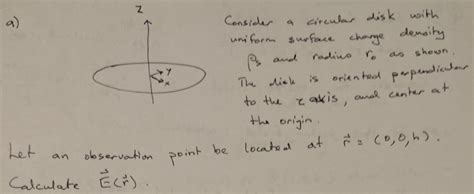 a)
z
y
x
Consider a circular disk with
uniform surface charge density
ρs and radius r₀ as shown.
The disk is oriented perpendicular
to the z axis, and center at
the origin.
Let an observation point be located at r⃗ = (0,0,h).
Calculate E⃗(r⃗).